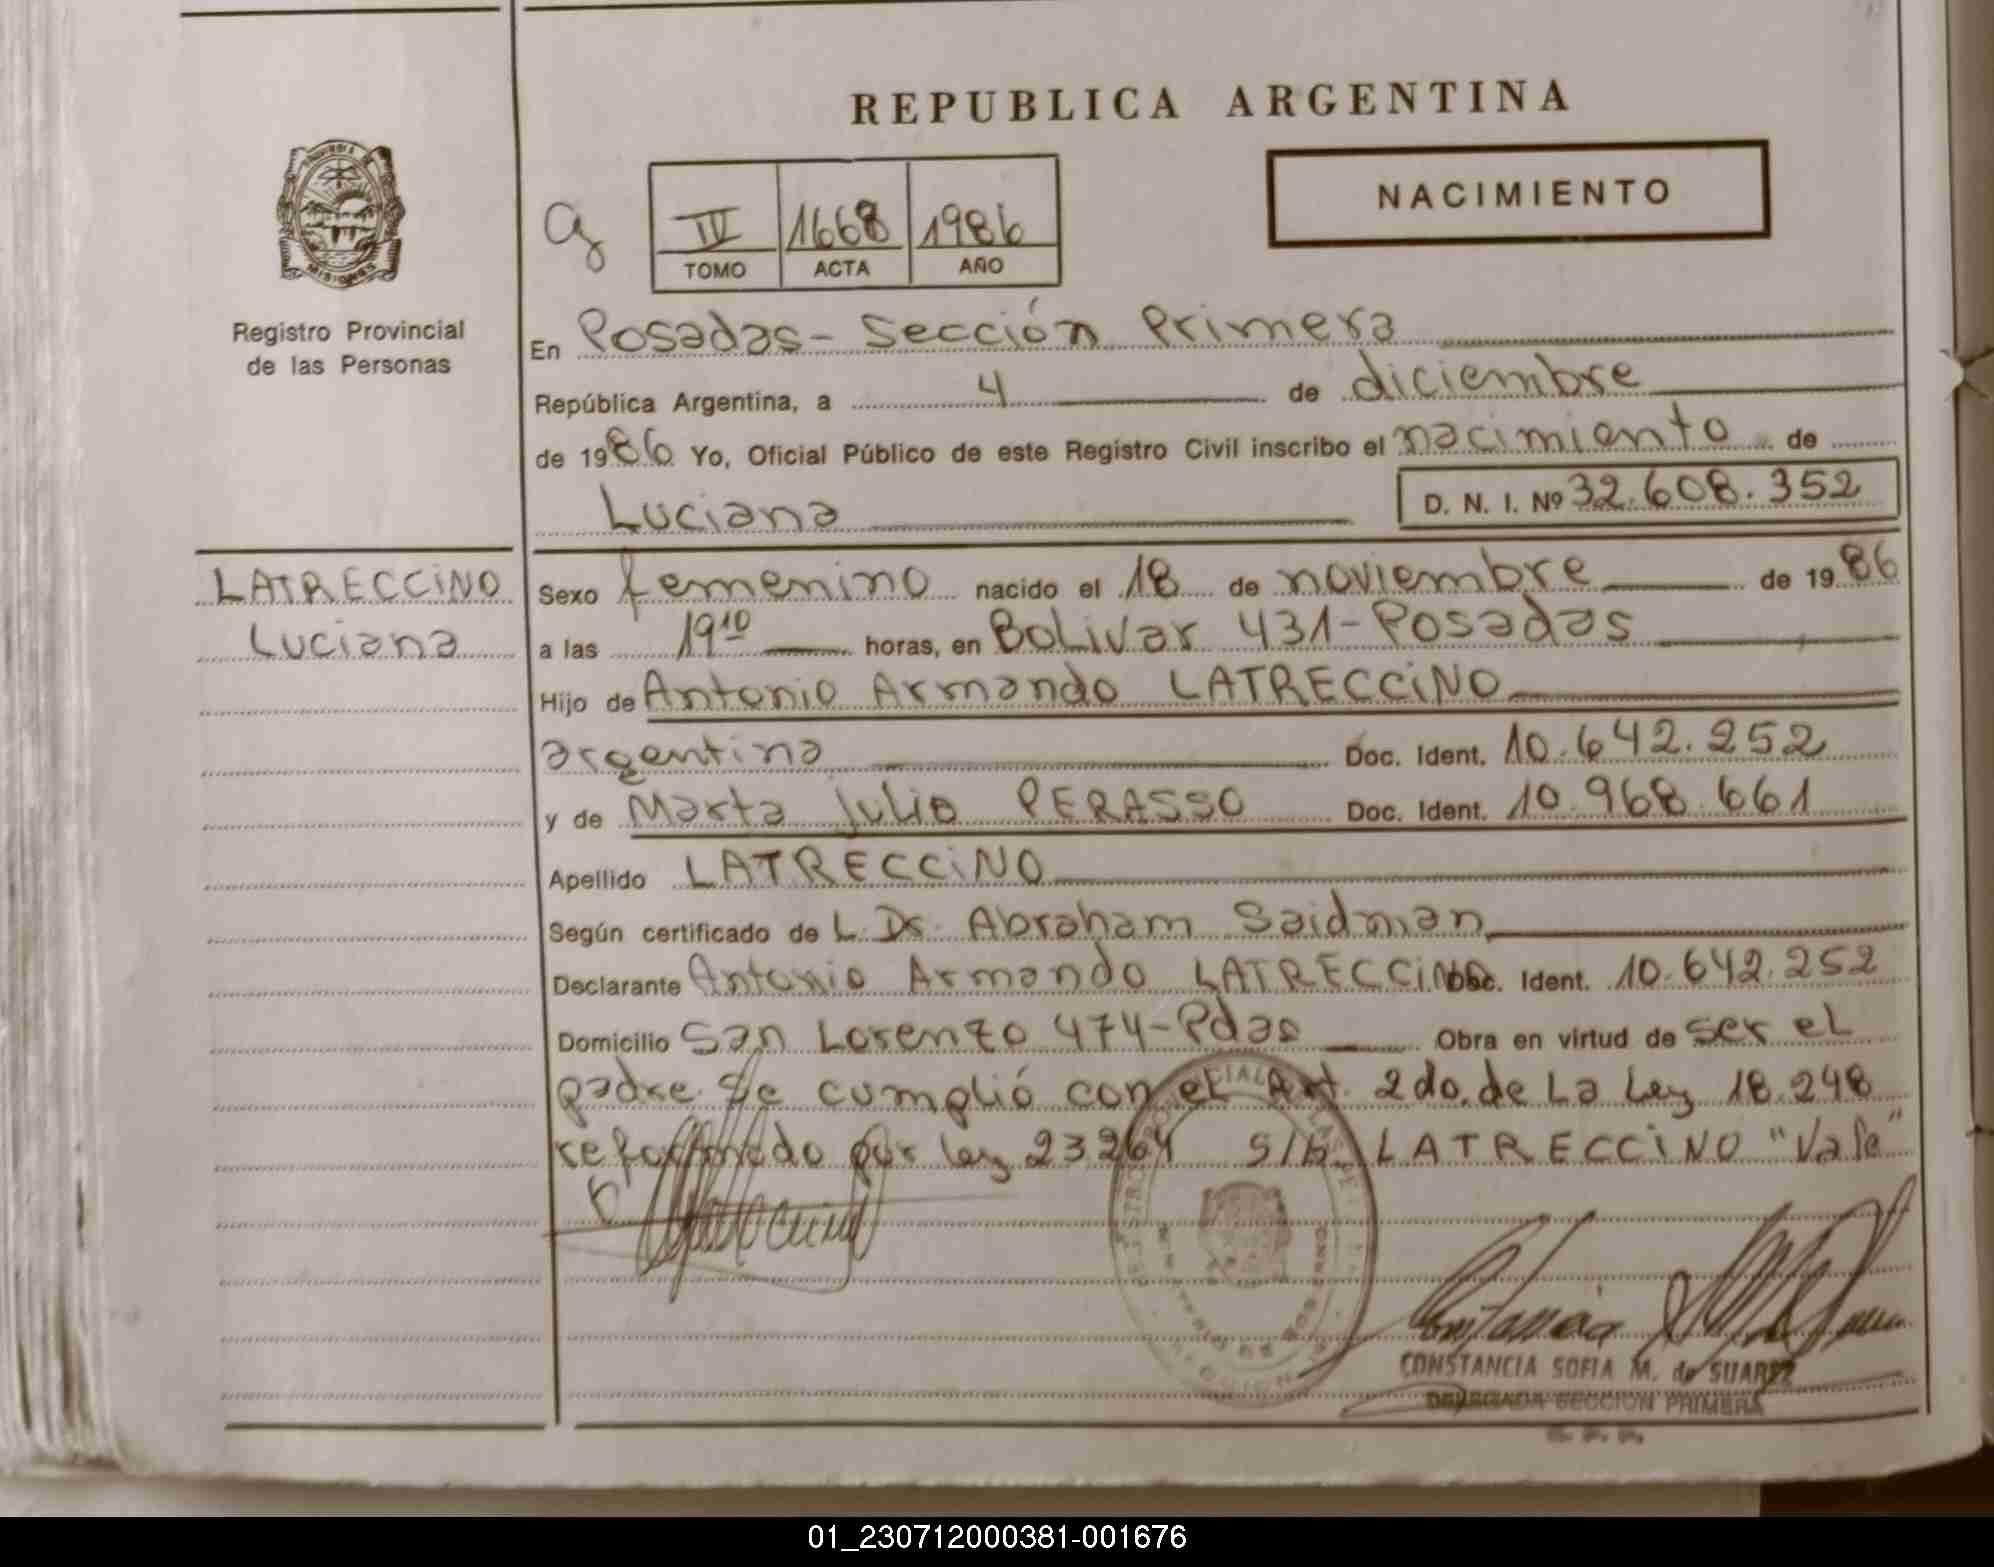 REPUBLICA ARGENTINA
NACIMIENTO
IV 1668 1986
TOMO ACTA AÑO
PROVINCIA DE
MISIONES
Registro Provincial
de las Personas
En Posadas - Sección Primera
República Argentina, a 4 de diciembre
de 1986 Yo, Oficial Público de este Registro Civil inscribo el nacimiento de
Luciana D. N. I. Nº 32.608.352
LATRECCINO
Luciana
Sexo femenino nacido el 18 de noviembre de 1986
a las 19 10 horas, en Bolivar 431 - Posadas
Hijo de Antonio Armando LATRECCINO
argentina Doc. Ident. 10.642.252
y de Marta Julia PERASSO Doc. Ident. 10.968.661
Apellido LATRECCINO
Según certificado de L. Dr. Abraham Saidman
Declarante Antonio Armando LATRECCINO Doc. Ident. 10.642.252
Domicilio San Lorenzo 474 - Pdas Obra en virtud de ser el
padre. Se cumplió con el Art. 2do. de La Ley 18.248
reformado por ley 23264 S/R. LATRECCINO "Vale"
CONSTANCIA SOFIA M. de SUAREZ
DELEGADA SECCION PRIMERA
01_230712000381-001676